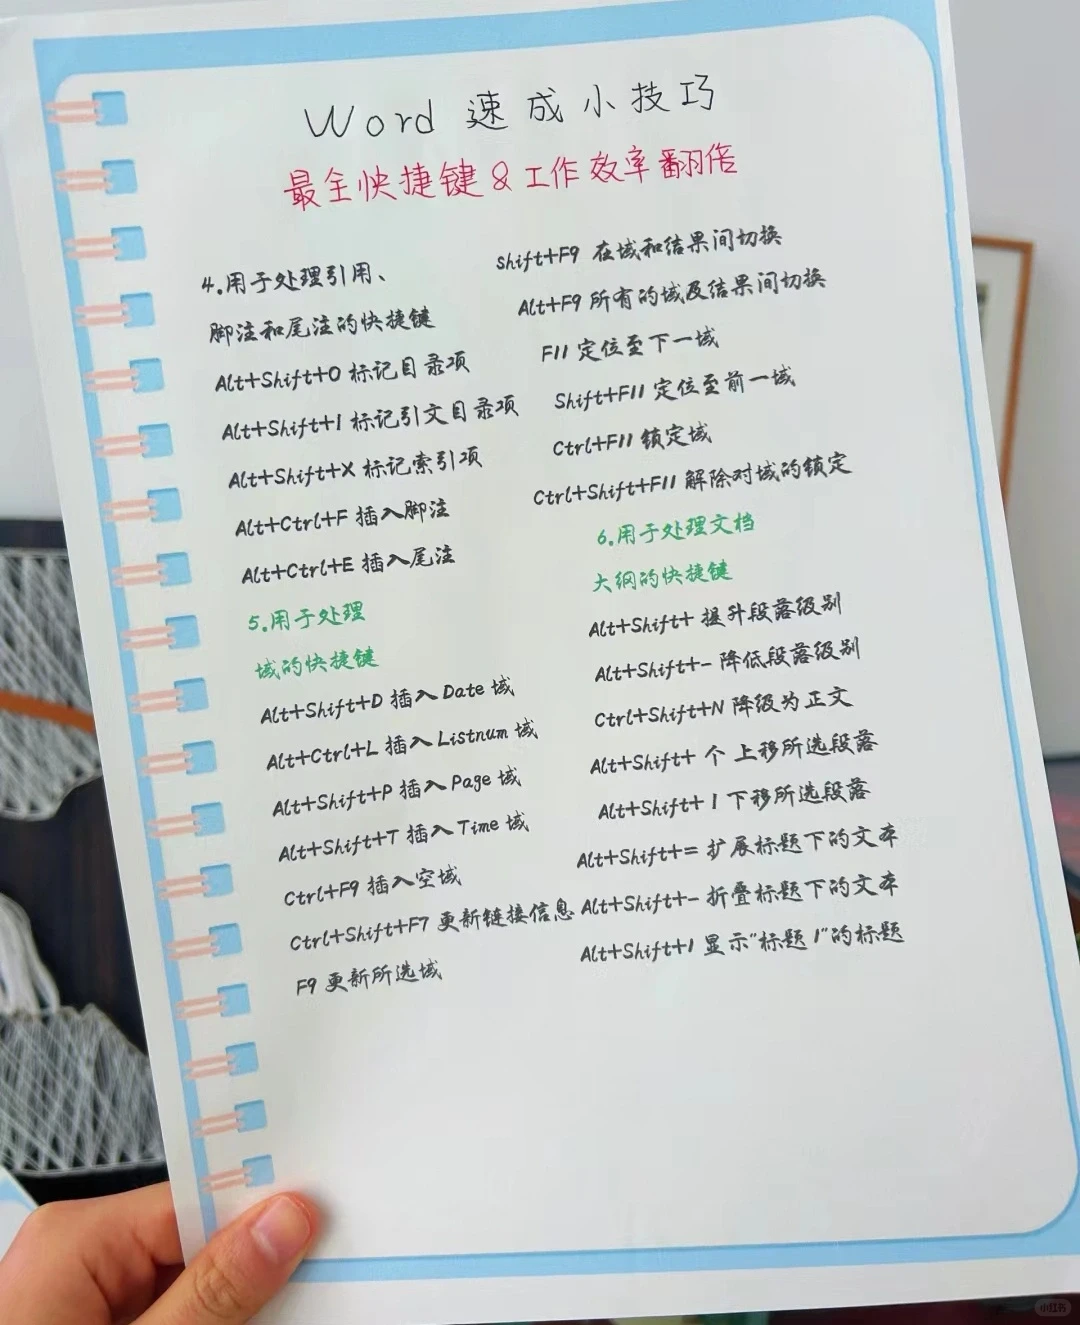 Word 速成小技巧
最全快捷键&工作效率翻倍
4.用于处理引用、
脚注和尾注的快捷键
Alt+Shift+O 标记目录项
Alt+Shift+I 标记引文目录项
Alt+Shift+X 标记索引项
Alt+Ctrl+F 插入脚注
Alt+Ctrl+E 插入尾注
5.用于处理
域的快捷键
Alt+Shift+D 插入Date 域
Alt+Ctrl+L 插入Listnum 域
Alt+Shift+P 插入Page 域
Alt+Shift+T 插入Time 域
Ctrl+F9 插入空域
Ctrl+Shift+F7 更新链接信息
F9 更新所选域
Shift+F9 在域和结果间切换
Alt+F9 所有的域及结果间切换
F11 定位至下一域
Shift+F11 定位至前一域
Ctrl+F11 锁定域
Ctrl+Shift+F11 解除对域的锁定
6.用于处理文档
大纲的快捷键
Alt+Shift+ 提升段落级别
Alt+Shift+- 降低段落级别
Ctrl+Shift+N 降级为正文
Alt+Shift+ 个 上移所选段落
Alt+Shift+ l 下移所选段落
Alt+Shift+= 扩展标题下的文本
Alt+Shift+- 折叠标题下的文本
Alt+Shift+1 显示"标题 1"的标题
小红书